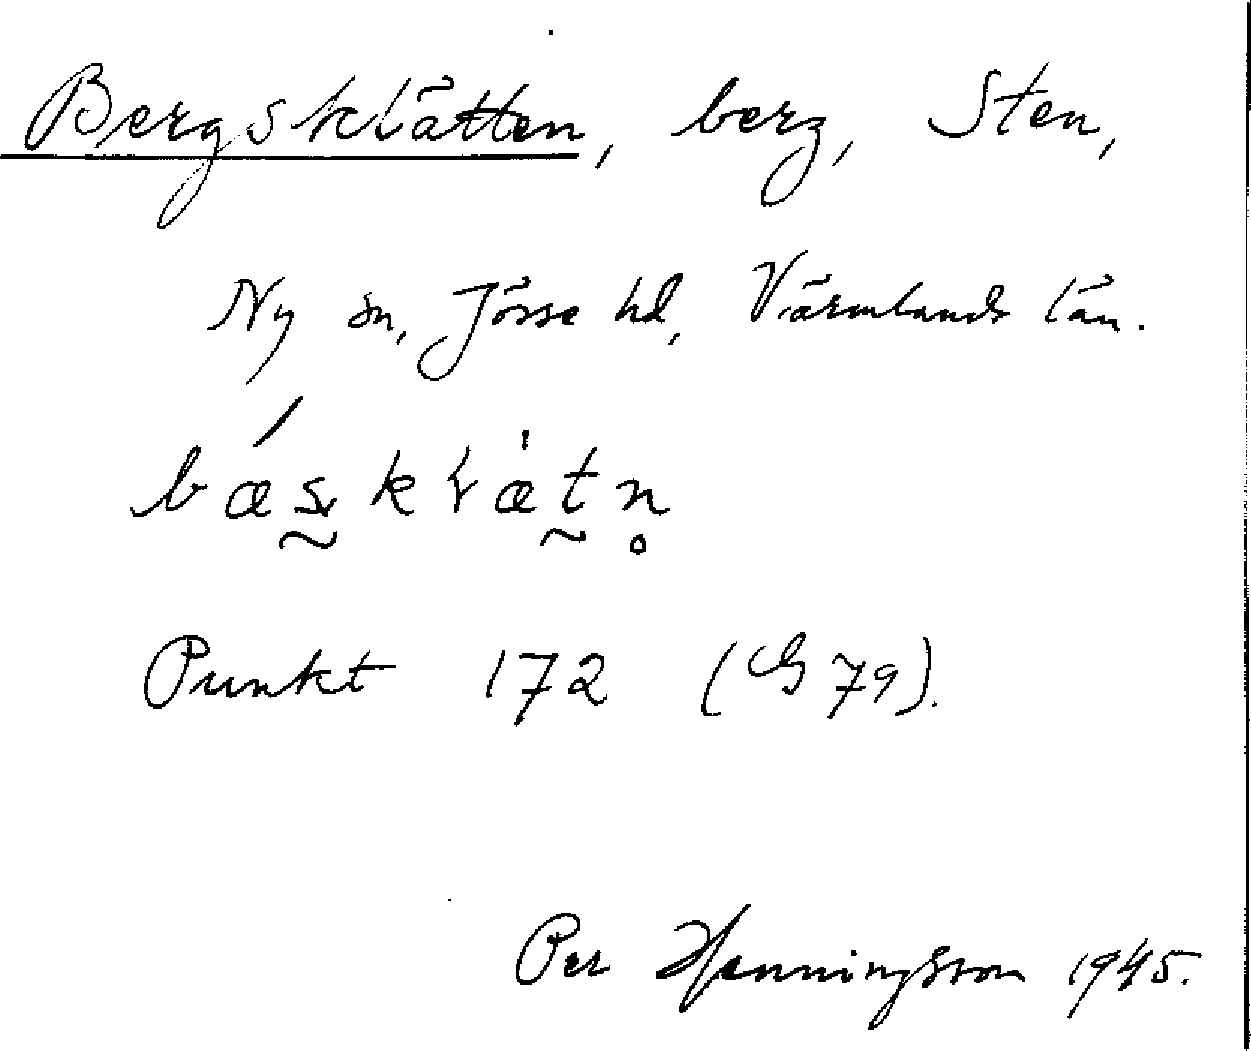 Bergsklätten, berg, Sten,
Ny sn, Jösse hd, Värmlands län.
bǽsklæ̍tn̥
Punkt 172 (G 79).
Per Henningsson 1945.